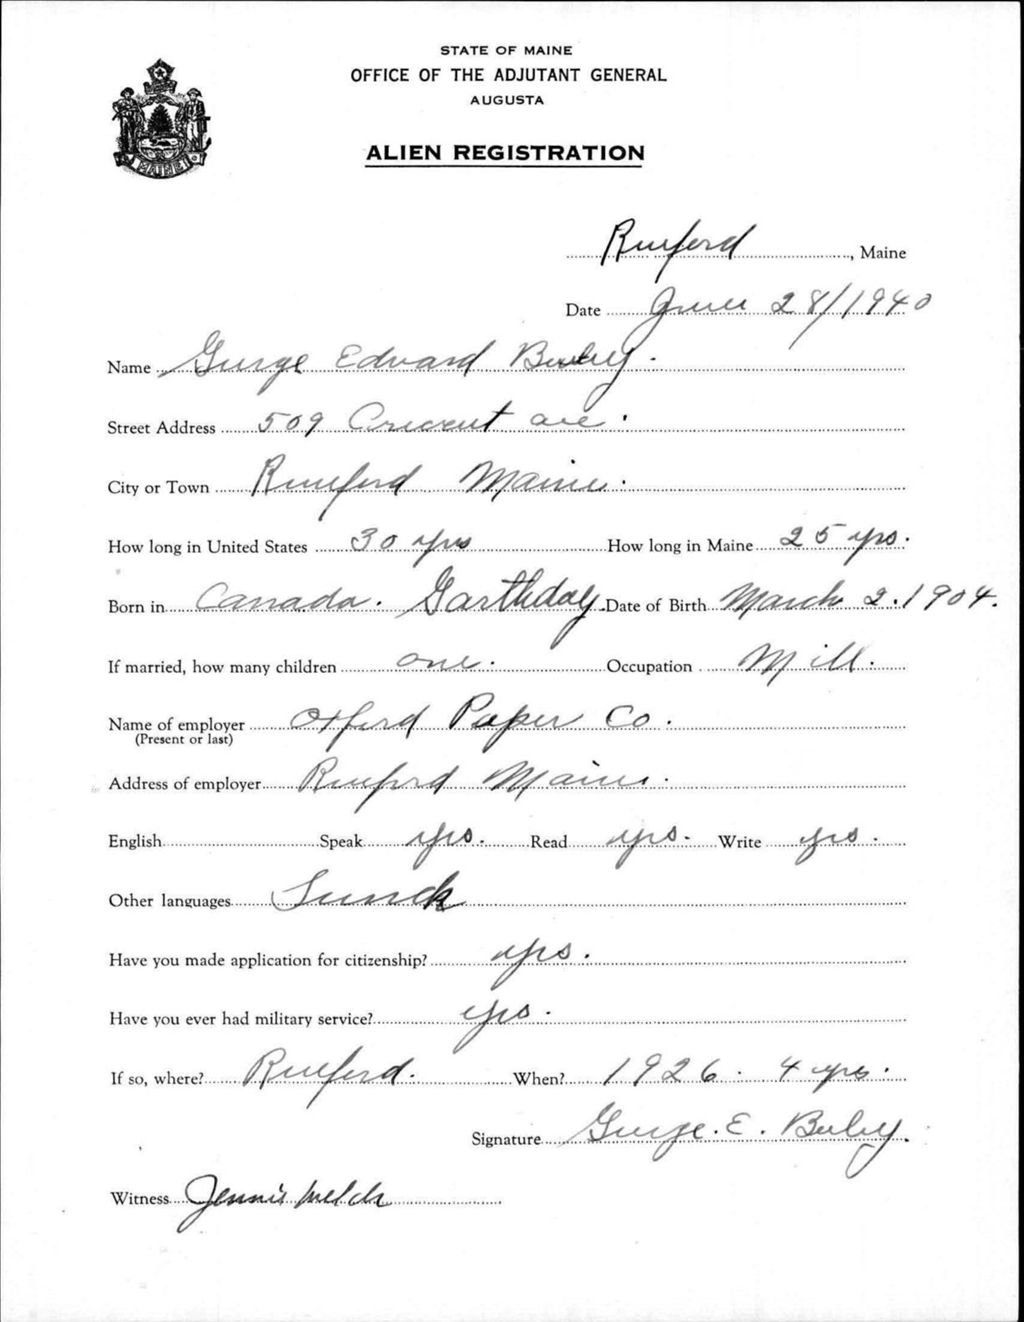 STATE OF MAINE
OFFICE OF THE ADJUTANT GENERAL
AUGUSTA
ALIEN REGISTRATION
Rumford, Maine
Date June 28/1940
Name George Edward
Street Address 509 Crescent ave.
City or Town Rumford Maine.
How long in United States 30 yrs How long in Maine 25 yrs.
Born in Canada. Garthday Date of Birth March 2. 1904.
If married, how many children one. Occupation Mill.
Name of employer Oxford Paper Co.
(Present or last)
Address of employer Rumford Maine.
English Speak yes. Read yes. Write yes.
Other languages French
Have you made application for citizenship? yes.
Have you ever had military service? yes.
If so, where? Rumford. When? 1926. 4 yrs.
Signature George. E.
Witness Jennie Welch
MAINE